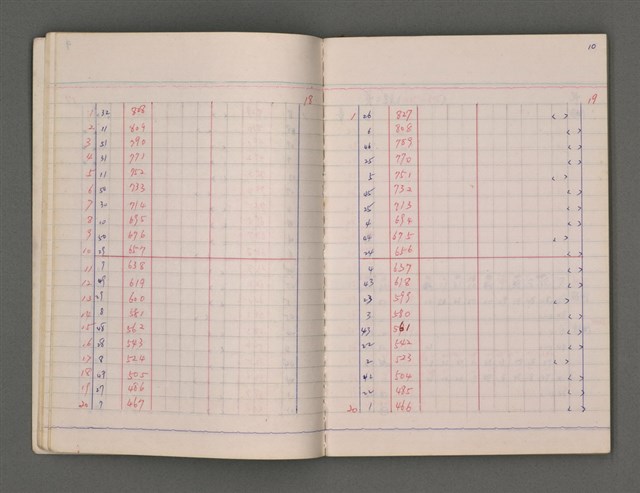 18
1 32 828
2 11 809
3 51 790
4 31 771
5 11 752
6 50 733
7 30 714
8 10 695
9 50 676
10 29 657
11 9 638
12 49 619
13 29 600
14 8 581
15 48 562
16 28 543
17 8 524
18 47 505
19 27 486
20 7 467
10
19
1 26 827 ( )
6 808 ( )
46 789 ( )
25 770 ( )
5 751 ( )
45 732 ( )
25 713 ( )
4 694 ( )
44 675 ( )
24 656 ( )
4 637 ( )
43 618 ( )
23 599 ( )
3 580 ( )
43 561 ( )
22 542 ( )
2 523 ( )
42 504 ( )
22 485 ( )
20 1 466 ( )